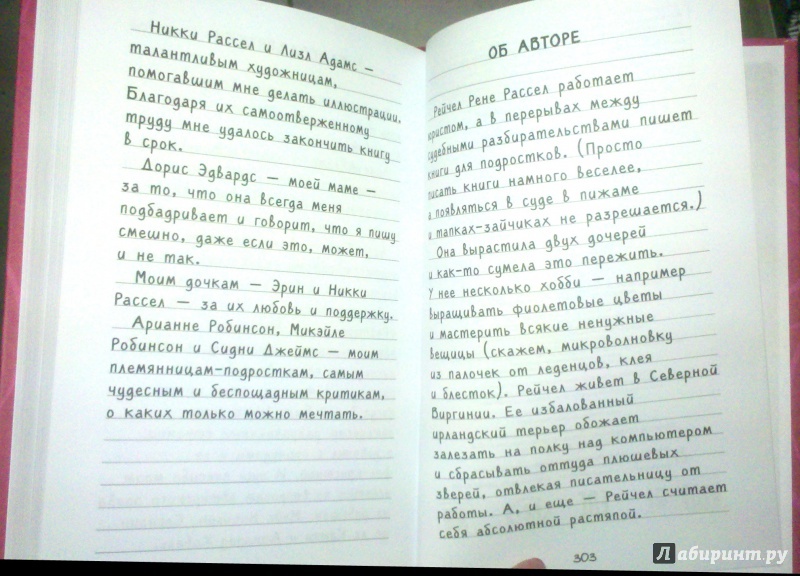 Никки Рассел и Лизл Адамс –
талантливым художницам,
помогавшим мне делать иллюстрации.
Благодаря их самоотверженному
труду мне удалось закончить книгу
в срок.
Дорис Эдвардс – моей маме –
за то, что она всегда меня
подбадривает и говорит, что я пишу
смешно, даже если это, может,
и не так.
Моим дочкам – Эрин и Никки
Рассел – за их любовь и поддержку.
Арианне Робинсон, Микэйле
Робинсон и Сидни Джеймс – моим
племянницам-подросткам, самым
чудесным и беспощадным критикам,
о каких только можно мечтать.
ОБ АВТОРЕ
Рейчел Рене Рассел работает
юристом, а в перерывах между
судебными разбирательствами пишет
книги для подростков. (Просто
писать книги намного веселее,
а появляться в суде в пижаме
и тапках-зайчиках не разрешается.)
Она вырастила двух дочерей
и как-то сумела это пережить.
У нее несколько хобби – например
выращивать фиолетовые цветы
и мастерить всякие ненужные
вещицы (скажем, микроволновку
из палочек от леденцов, клея
и блесток). Рейчел живет в Северной
Виргинии. Ее избалованный
ирландский терьер обожает
залезать на полку над компьютером
и сбрасывать оттуда плюшевых
зверей, отвлекая писательницу от
работы. А, и еще – Рейчел считает
себя абсолютной растяпой.
303
Лабиринт.ру